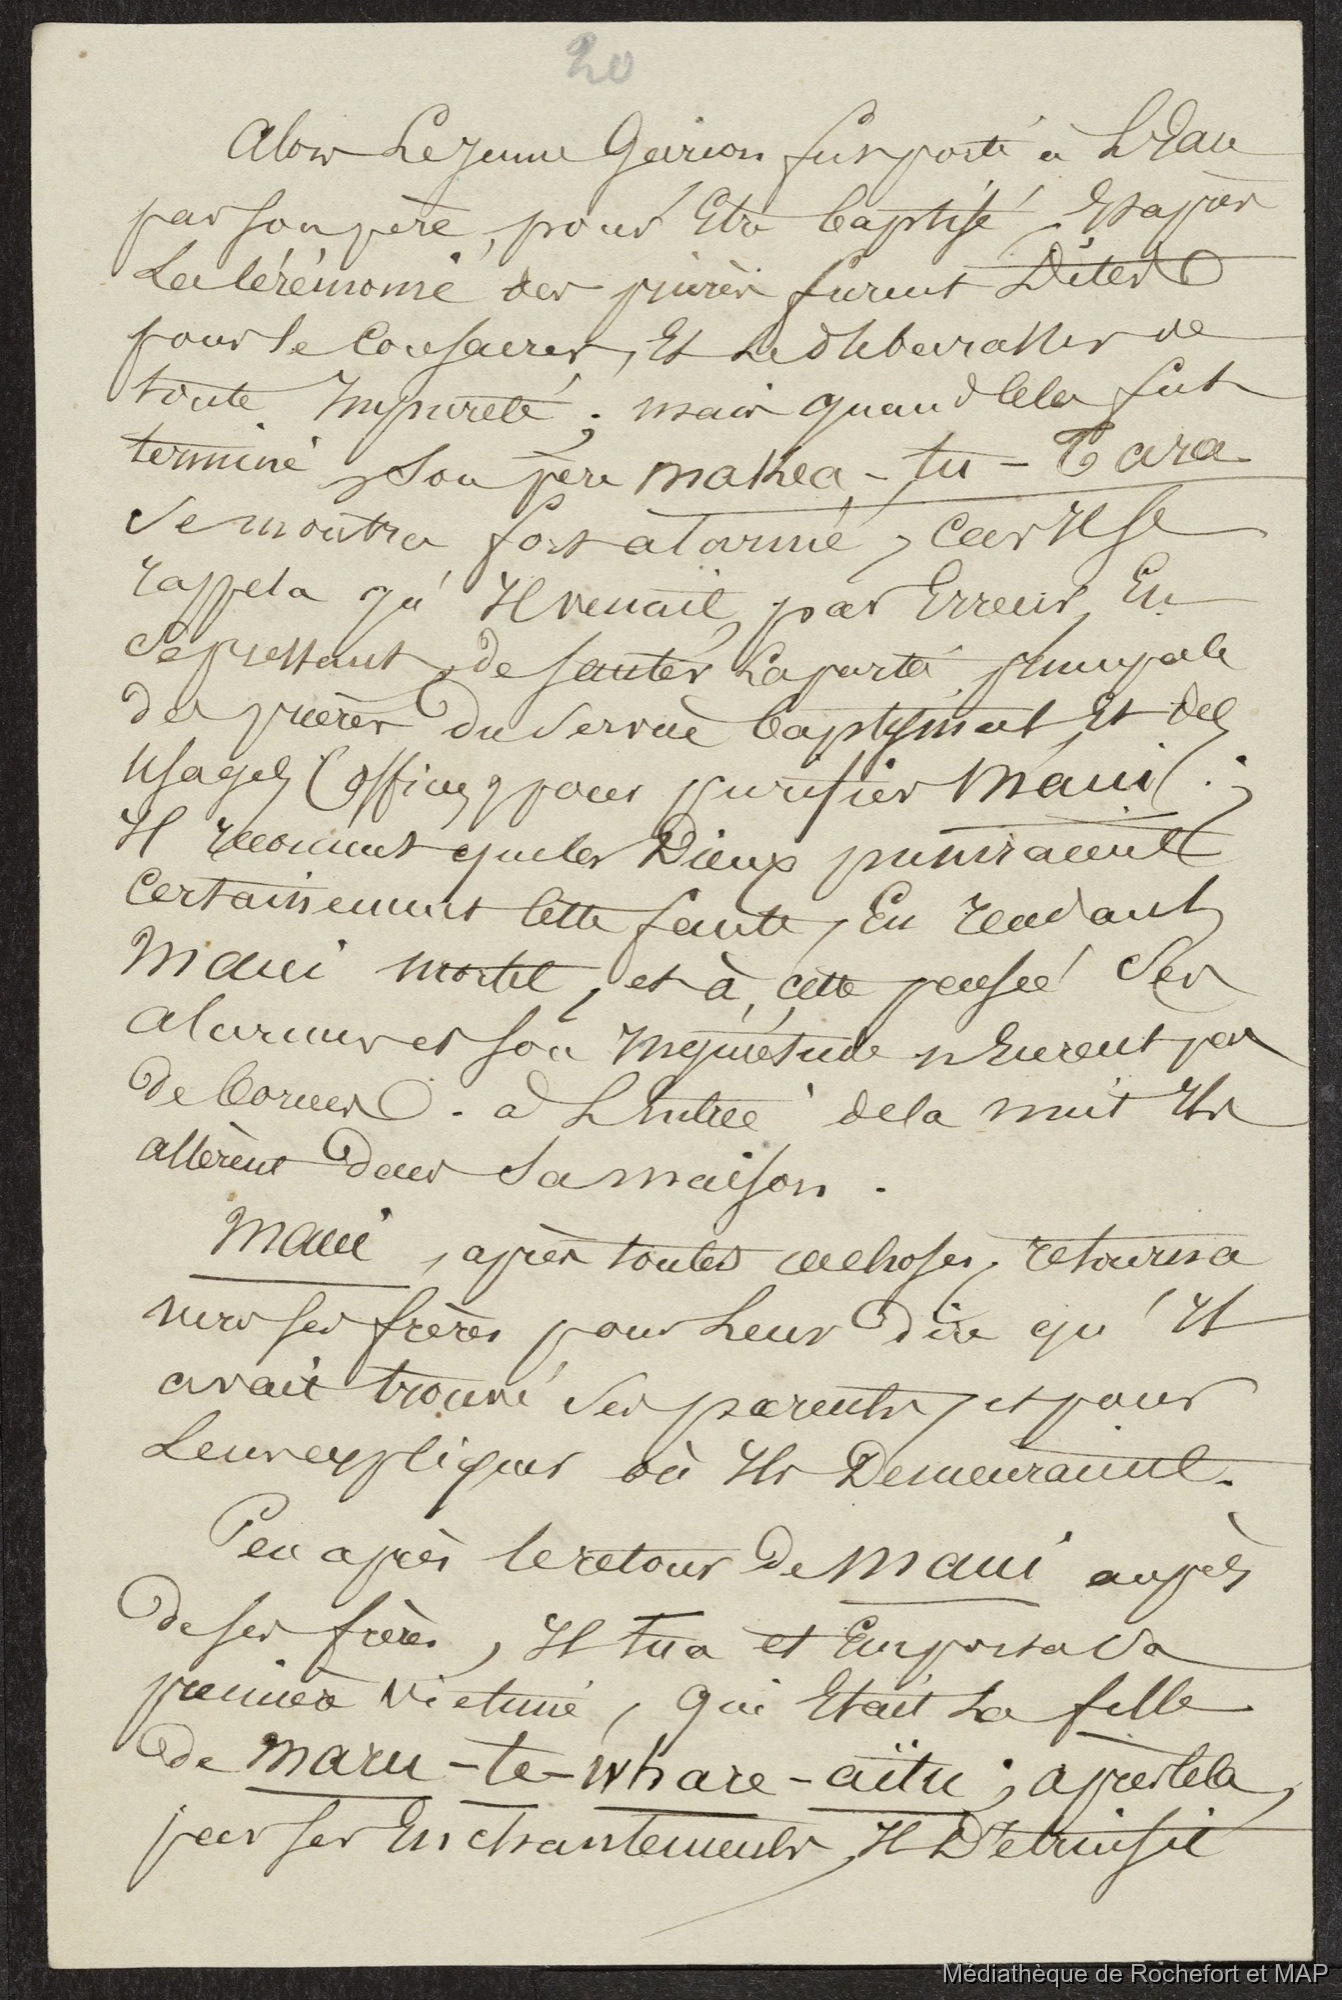 20
Alors Le Jeune Garçon fut porté à L'Eau
par son père, pour Etre baptisé, Et après
La Cérémonie des prières furent Dites
pour le Consacrer, Et Le débarasser de
toute Impureté ; mais quand cela fut
terminé, Son père Makea-tu-Tara
se montra fort alarmé, car Il se
rappela qu'Il venait, par Erreur, En
se pressant, de sauter La partie principale
des prières Du Service baptismal, Et des
usages (offices) pour purifier Maui ;
Il reconnut que les Dieux puniraient
Certainement cette faute, En rendant
Maui mortel, et à cette pensée Ses
alarmes et son Inquiétude n'Eurent pas
de bornes. à L'Entrée de la nuit Ils
allèrent Dans Sa maison.
Maui, après toutes ces choses, retourna
vers ses frères pour Leur Dire qu'Il
avait trouvé Ses parents, et pour
Leur expliquer où Ils Demeuraient.
Peu après le retour De Maui auprès
De ses frères, Il tua et Emporta Sa
première victime, qui Etait La fille
De Maru-te-Whare-aïtu ; après cela,
par ses Enchantements, Il Détruisit
Médiathèque de Rochefort et MAP